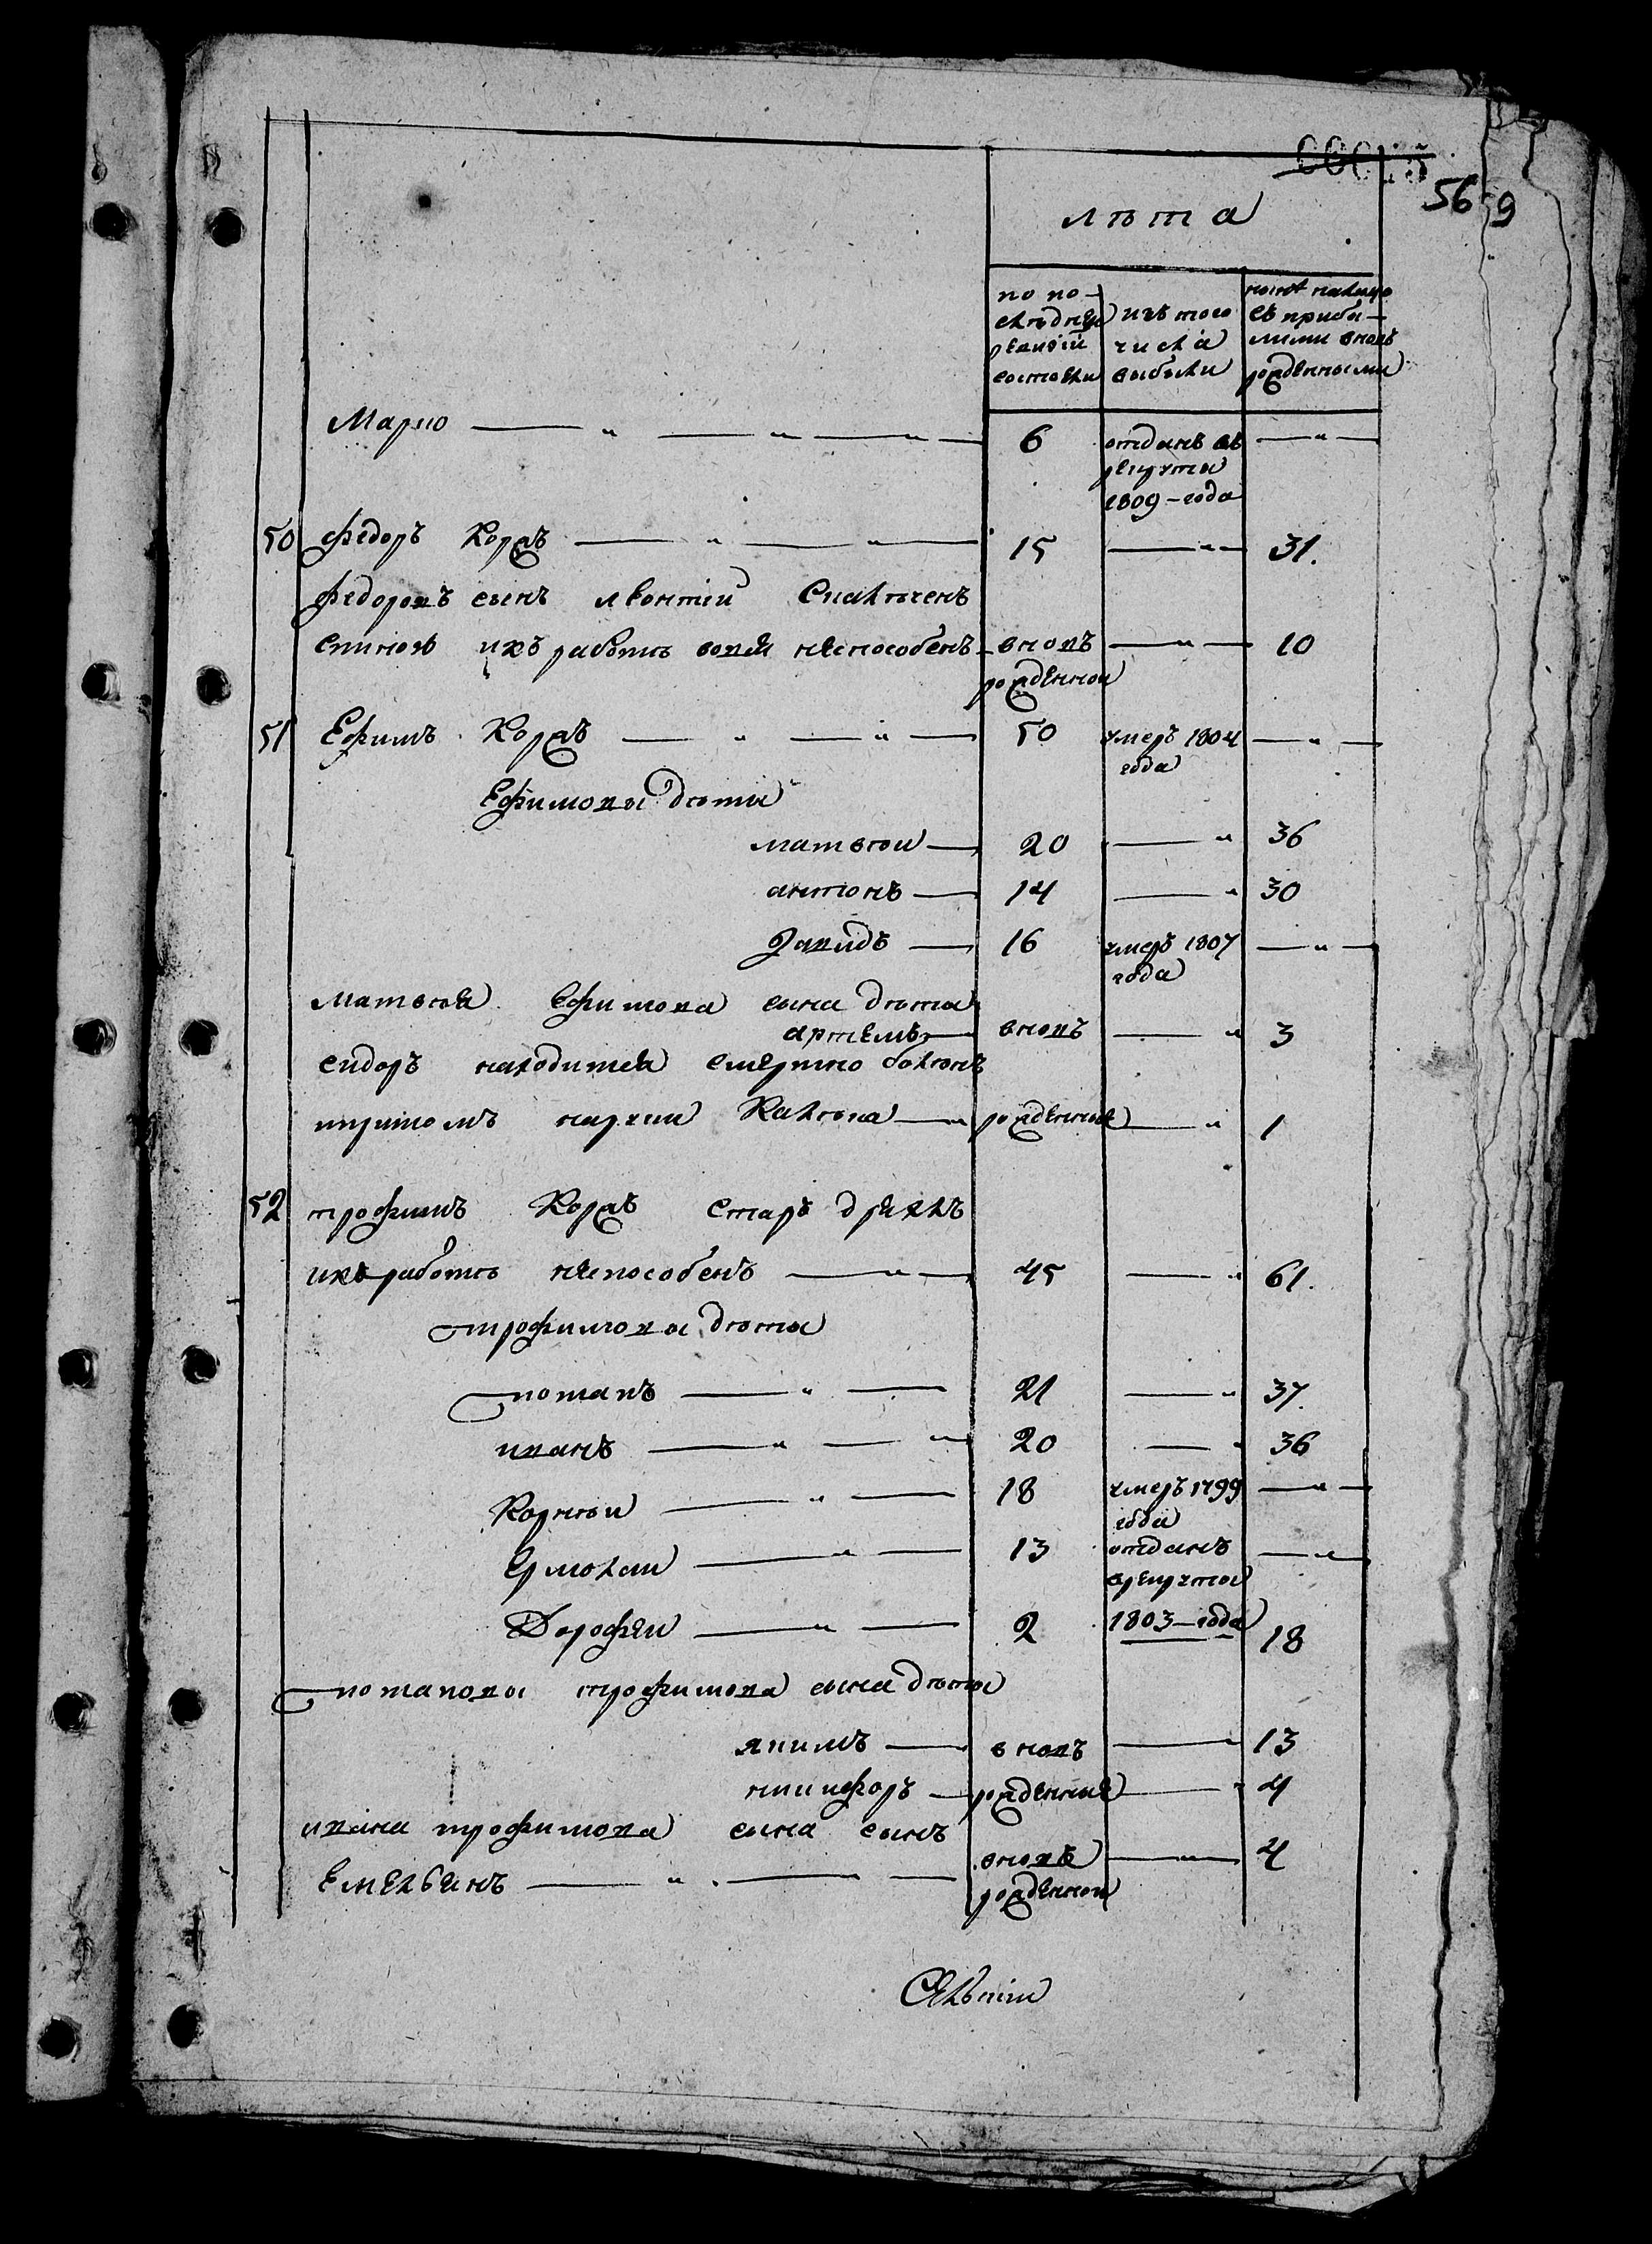 00015
56 9
лѣта
по по-
слѣдней
ревизіи
состояли
изъ того
числа
выбыли
ныне налицо
съ прибы-
лыми вновь
рожденными
Марко — " — " — " — 6 отданъ въ — " —
рекрута
1809-года
50 федоръ Коржъ — " — " — 15 — " — 31.
федоровъ сынъ леонтій скалѣченъ
спиною икъ работѣ вовся неспособенъ - вновь — " — 10
рожденной
51 Ефимъ Коржъ — " — " — 50 умеръ 1804 — " —
года
Ефимовы дѣти
матвѣй — 20 — " 36
антонъ — 14 — " 30
давидъ — 16 умеръ 1807 — " —
года
матвѣя Ефимова сына дѣти
артемъ — вновь — " 3
сидоръ находится смертно боленъ
притомъ нарочи калѣка — " рожденные — " 1
52 трофимъ Коржъ старъ дряхлъ
икъ работѣ неспособенъ — " — 45 — " 61.
трофимовы дѣти
потапъ — " — 21 — " 37.
иванъ — " — " 20 — " 36
Корнѣй — " — 18 умеръ 1799 — " —
года
Ермолай — " — 13 отданъ — " —
врекрута
Дорофей — " — 2 1803-года 18
потаповы трофимова сына дѣти
якимъ — вновь — " 13
никифоръ — рожденные — " 4
ивана трофимова сына сынъ
Емельянъ — " — — вновь — " — 4
рожденной